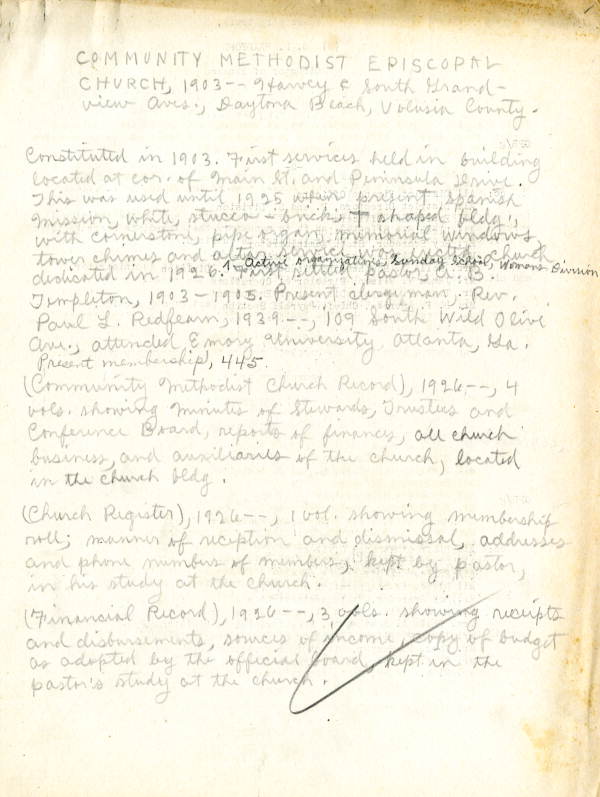 COMMUNITY METHODIST EPISCOPAL
CHURCH, 1903-- Harvey & South Grand-
view Aves., Daytona Beach, Volusia County.
Constituted in 1903. First services held in building
located at cor. of Main St. and Peninsula Drive.
This was used until 1925 when present Spanish
Mission, white, stucco-brick, T shaped bldg.,
with cornerstone, pipe organ, memorial windows,
tower chimes and church
Active organizations, Sunday School, Womans Division
dedicated in 1926. First settled pastor, A. B.
Templeton, 1903-1905. Present clergyman, Rev.
Paul L. Redfearn, 1939--, 109 South Wild Olive
Ave., attended Emory University Atlanta, Ga.
Present membership, 445.
(Community Methodist Church Record), 1926--, 4
vols. showing minutes of Stewards, Trustees and
Conference Board, reports of finances, all church
business, and auxiliaries of the church, located
in the church bldg.
(Church Register), 1926--, 1 vol. showing membership
roll; manner of reception and dismissal, addresses
and phone numbers of members, kept by pastor,
in his study at the church.
(Financial Record), 1926--, 3 vols. showing receipts
and disbursements, sources of income, copy of budget
as adopted by the official board, kept in the
pastor's study at the church.